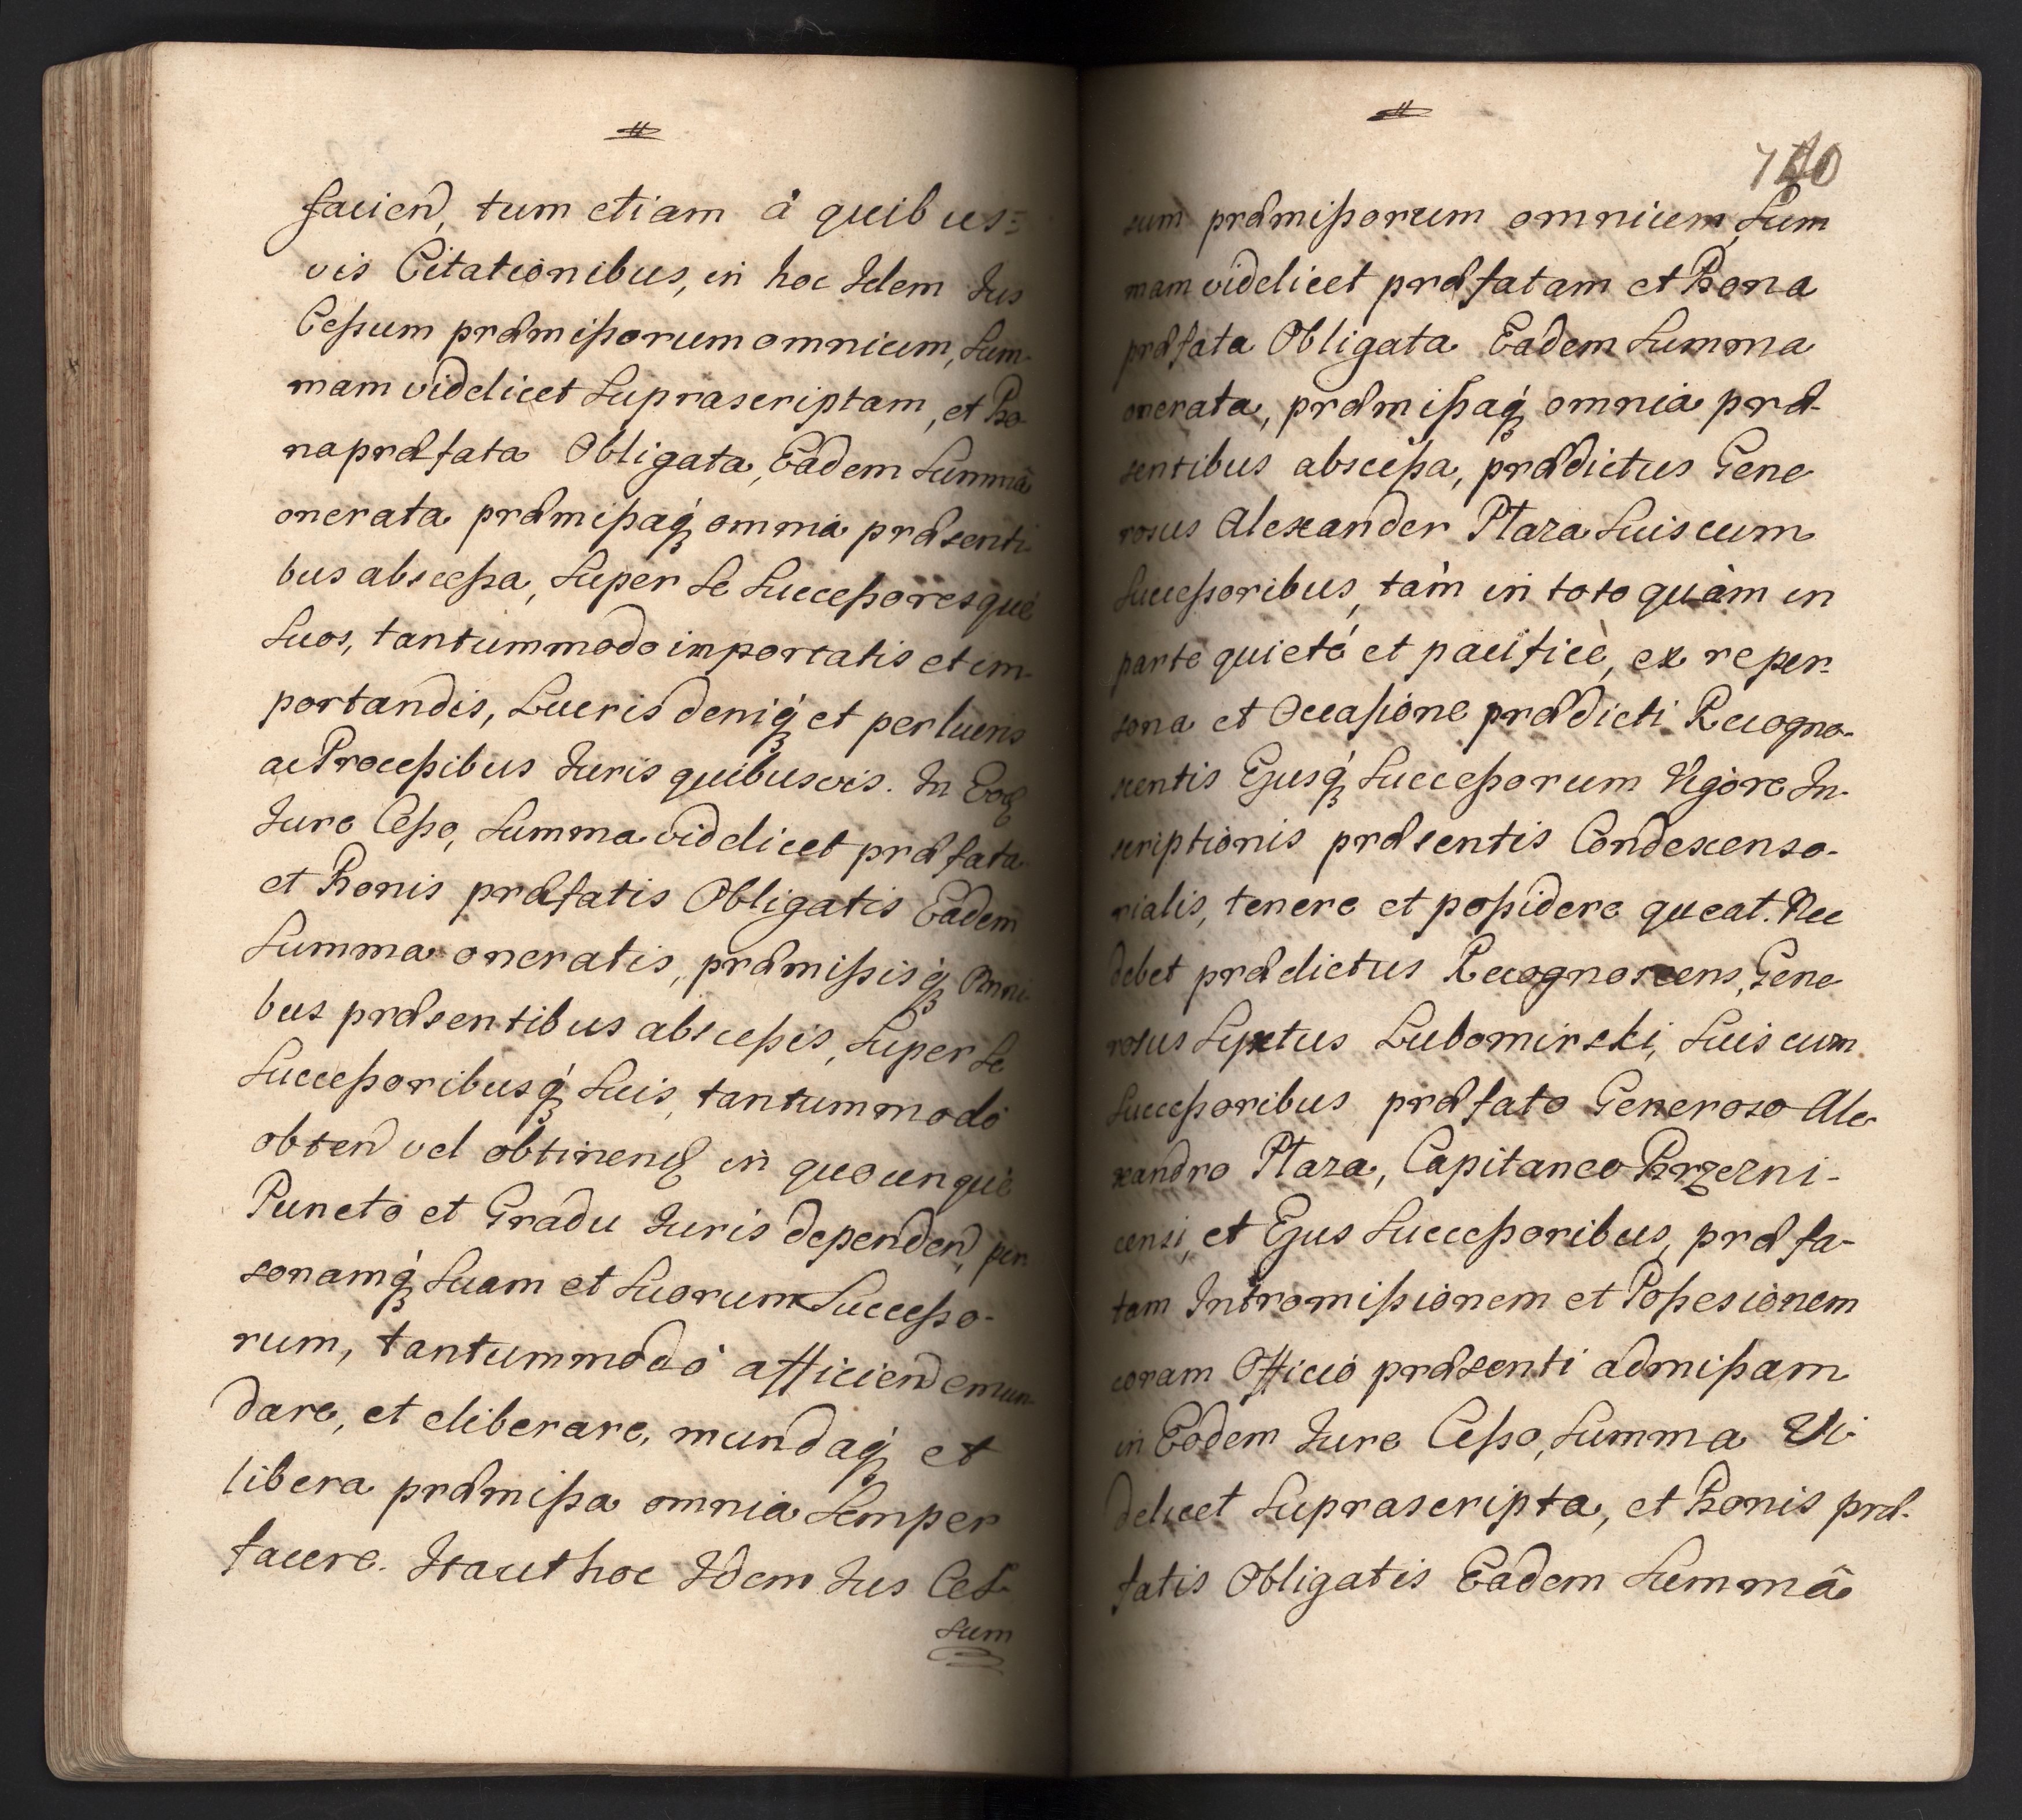 facien, tum etiam à quibus=
vis Citationibus, in hoc Idem Jus
Cessum præmissorum omnium, Sum-
mam videlicet Suprascriptam, et Bo-
na præfata Obligata, Eadem Summâ
onerata præmissaq; omnia præsenti-
bus abscessa, Super Se Successoresque
Suos, tantummodo inportatis et im-
portandis, Lucris deniq; et perlucris
ac Processibus Juris quibusvis. In Eod
Jure Cesso, Summa videlicet præfata
et Bonis præfatis Obligatis Eadem
Summa oneratis, præmissisq; Omni-
bus præsentibus abscessis, Super Se
Successoribusq; Suis, tantummodo
obten vel obtinend in quocunque
Puncto et Gradu Juris dependen, per
sonamq; Suam et Suorum Successo-
rum, tantummodo afficien emun-
dare, et eliberare, mundaq; et
libera præmissa omnia Semper
facere. Ita ut hoc Idem Jus Ces-
sum
740
sum præmissorum omnium, Sum
mam videlicet præfatam et Bona
præfata Obligata Eadem Summa
onerata, præmissaq; omnia præ-
sentibus abscessa, prædictus Gene
rosus Alexander Ptaza Suis cum
Successoribus, tàm in toto quàm in
parte quietè et pacificè, ex re per-
sona et Occasione prædicti Recogno-
scentis Ejusq; Successorum Vigore In-
scriptionis præsentis Condescenso-
rialis, tenere et possidere queat. Nec
debet prædictus Recognoscens, Gene
rosus Syxtus Lubomirski, Suis cum
Successoribus præfato Generoso Ale-
xandro Ptaza, Capitaneo Brzezni-
censi, et Ejus Successoribus, præfa-
tam Intromissionem et Possesionem
coram Officio præsenti admissam
in Eodem Jure Cesso, Summa Vi-
delicet Suprascripta, et Bonis præ-
fatis Obligatis Eadem Summâ